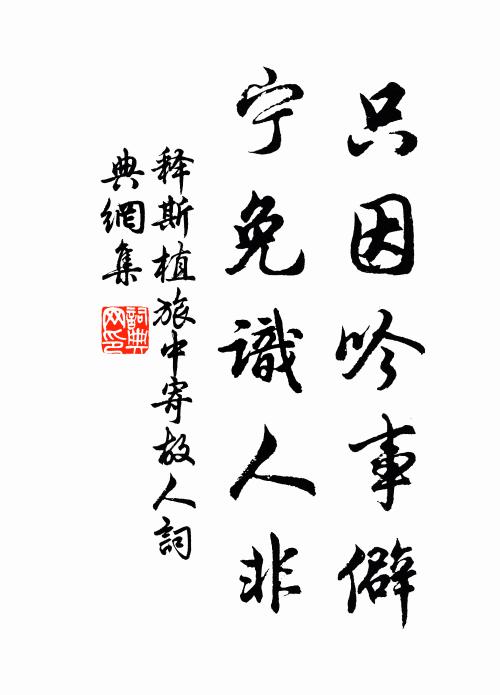 只因吟事僻
宁免識人非
释斯植旅中寄故人詞
典網集
詞典网印